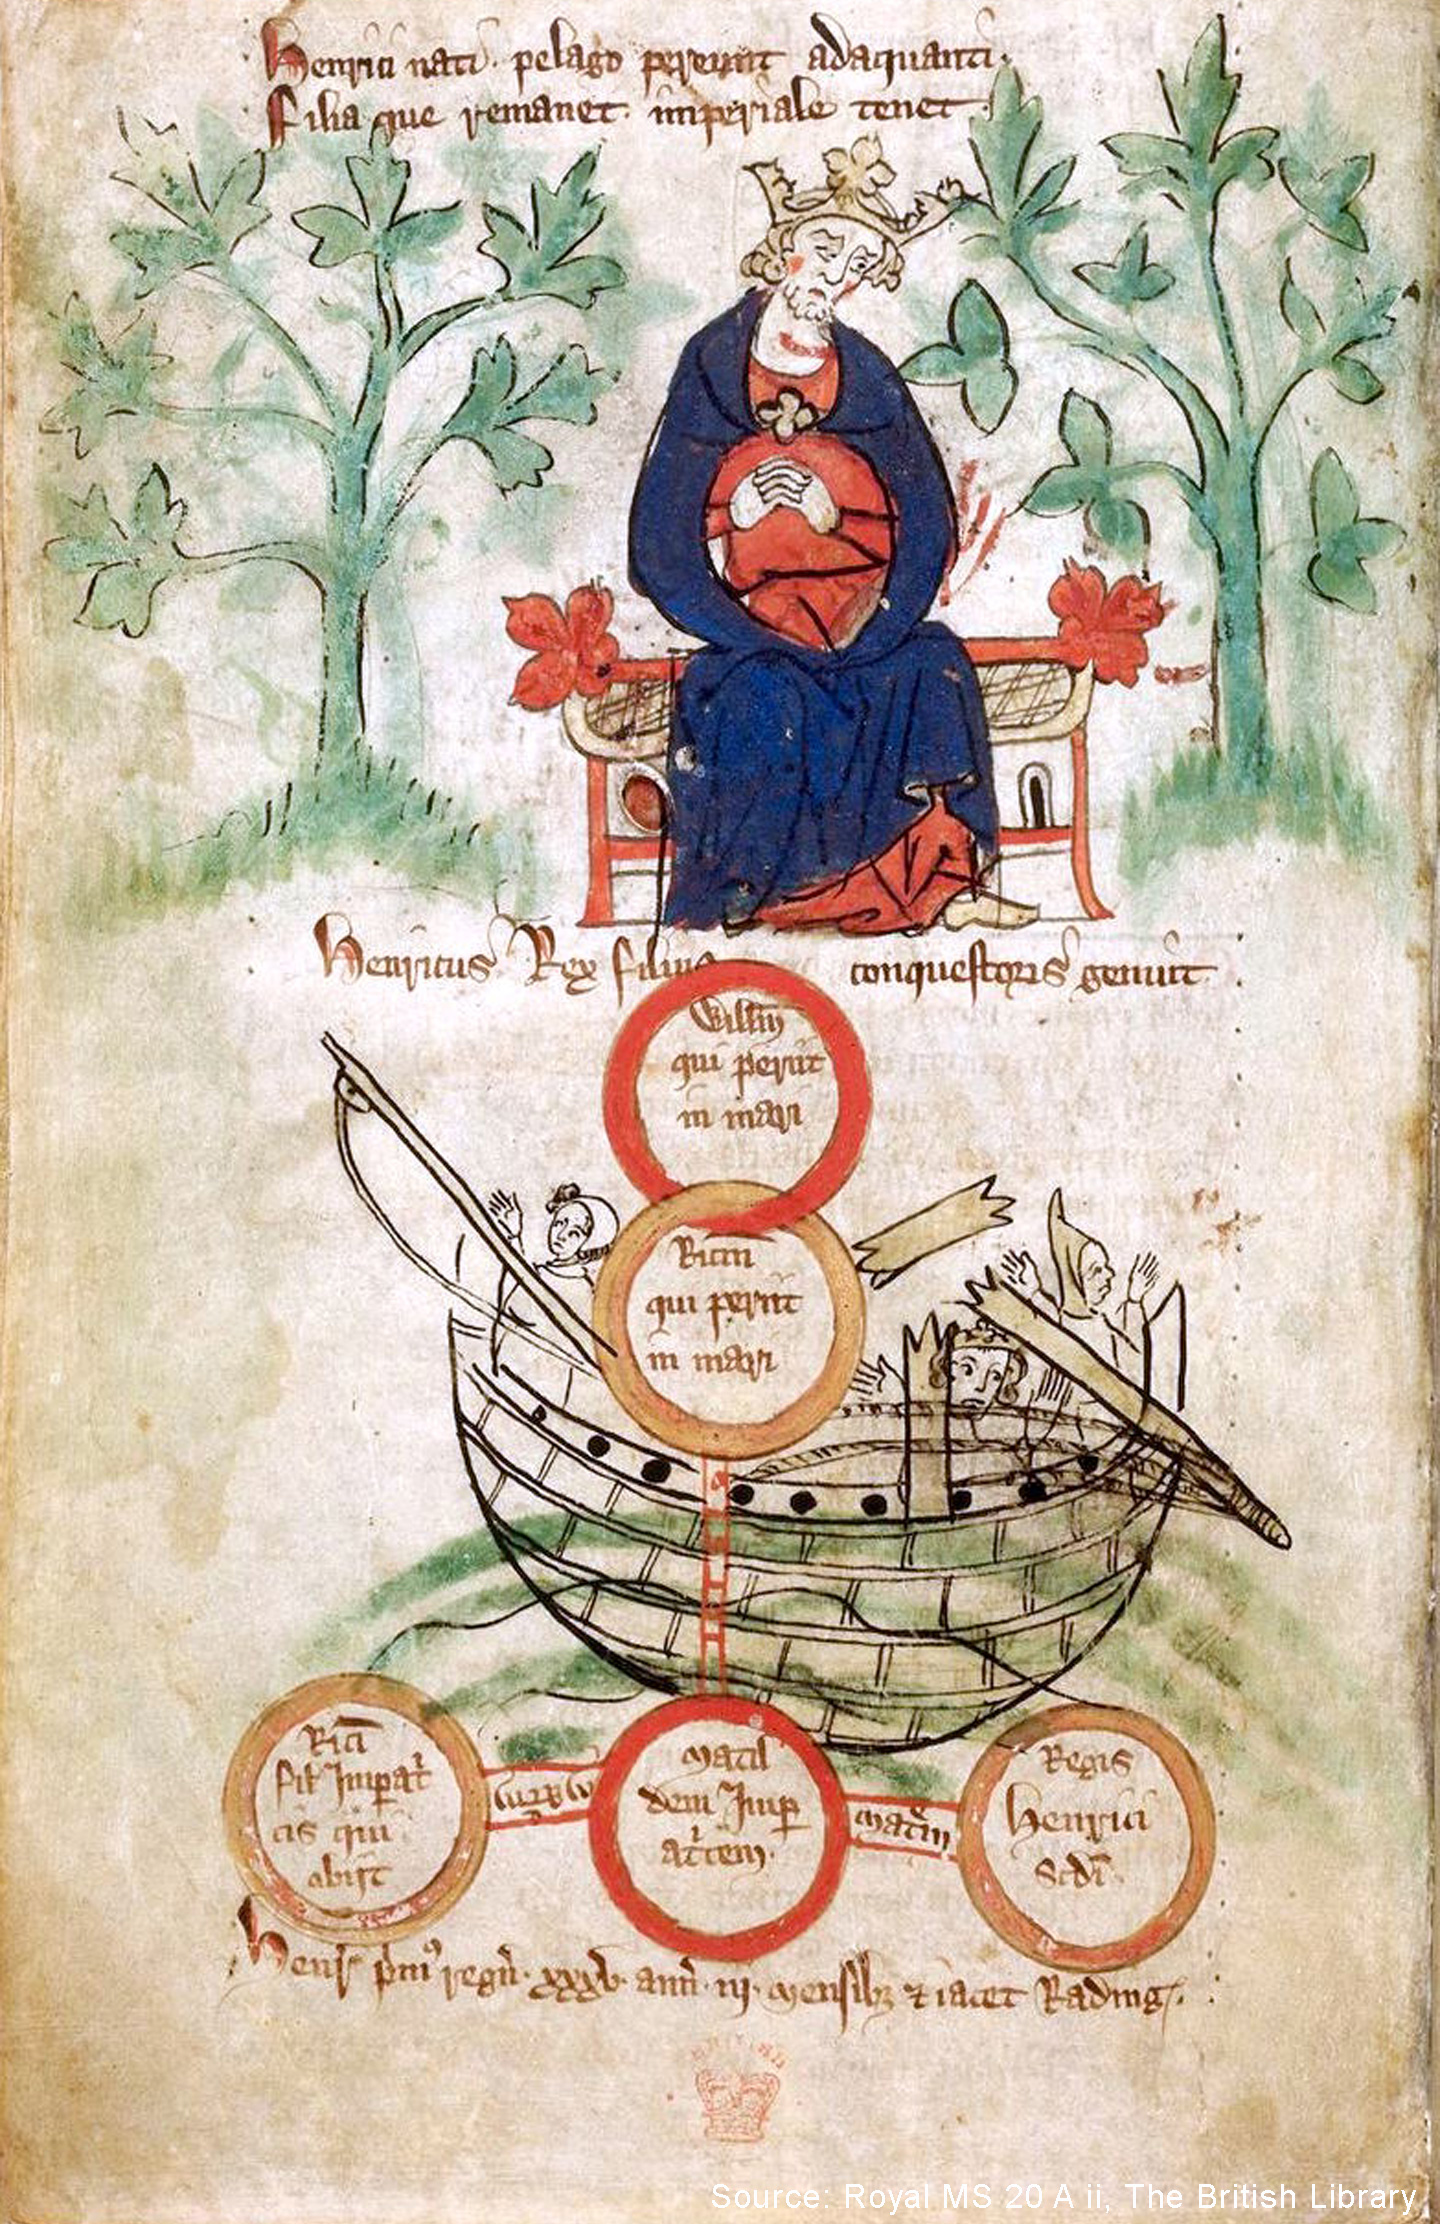 Henrici nati · pelago pereunt adaquanti ·
Filia que remanet · imperiale tenet ·
Henricus Rex filius conquestoris genuit
Willm
qui periit
in mari
Ricm
qui periit
in mari
Rici
fil' Imperat
cis qui
obiit
Matil
dem Imp
at'cem ·
mat'm
Regis
Henrici
Scdi ·
Henr' pm' regn' · xxxv · ann' · iij · mensib; & iacet Rading' ·
Source: Royal MS 20 A ii, The British Library